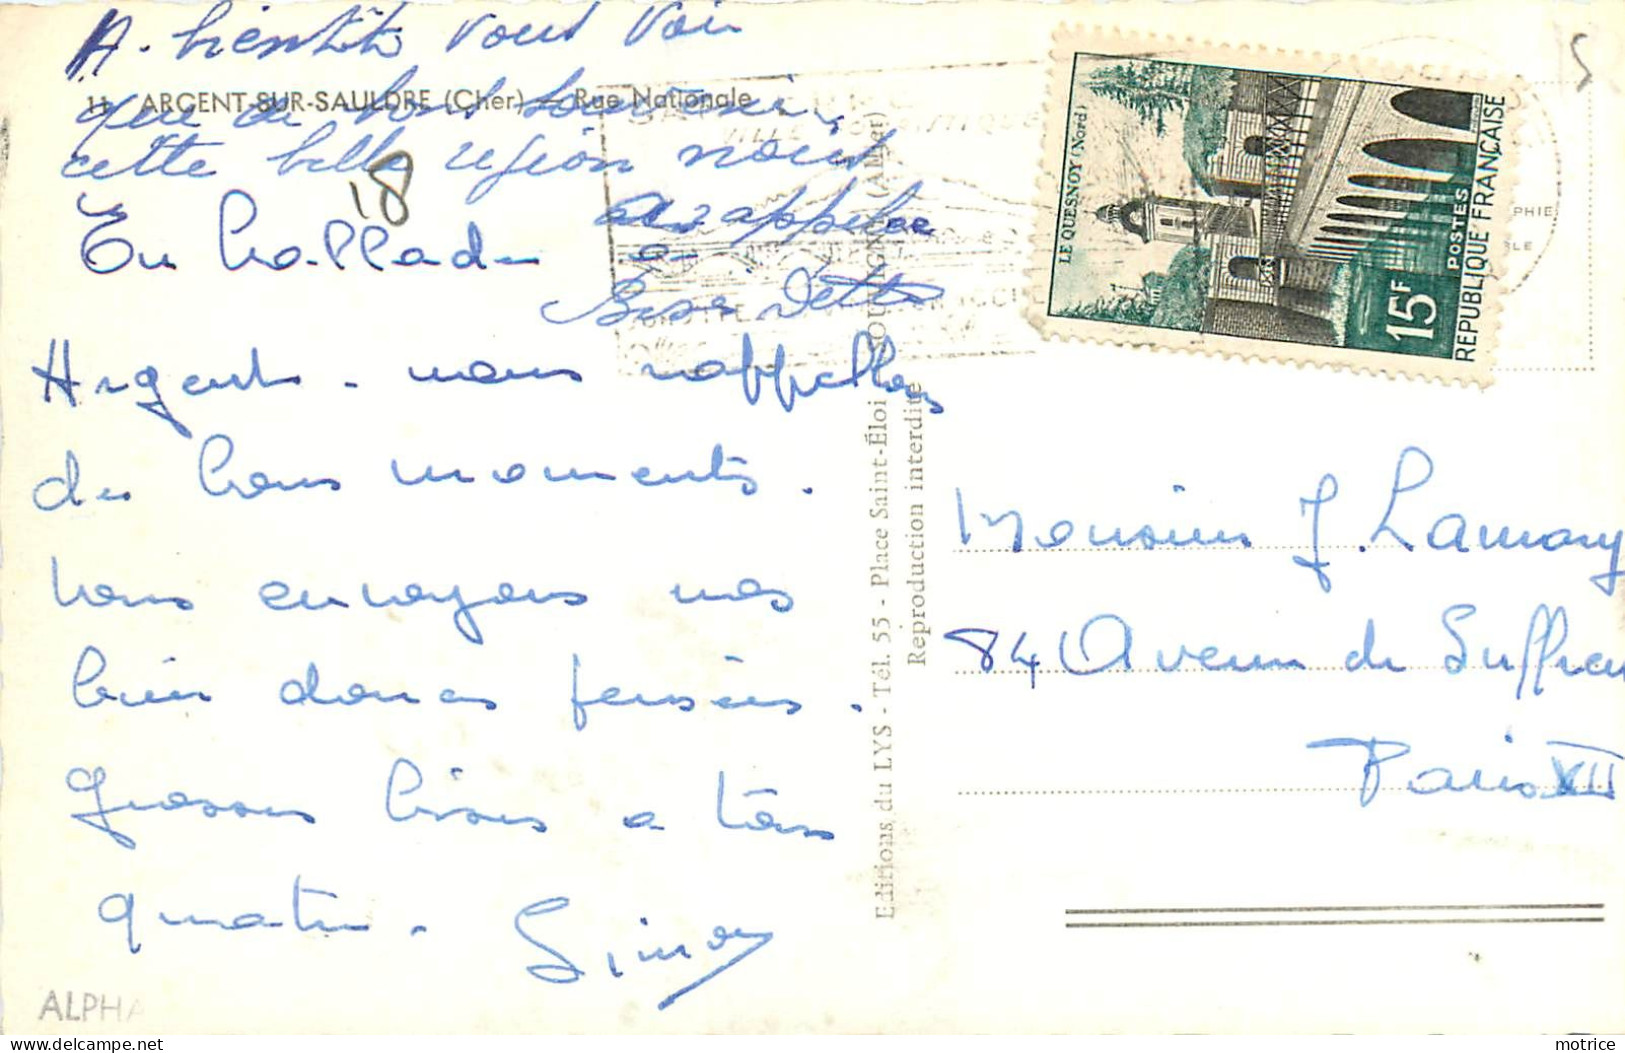 A. bientôt vous voir
11. ARGENT-SUR-SAULDRE (Cher) — Rue Nationale
que de bons souvenirs
cette belle région nous
18
rappelle
En ballade à
Argent - nous rappellons
des bons moments.
Vous envoyons nos
bien douces pensées.
Grosses bises a tous
quatre. Simon
ALPHA
Editions du LYS - Tél. 55 - Place Saint-Éloi
Reproduction interdite
LE QUESNOY (Nord)
15F
POSTES
REPUBLIQUE FRANÇAISE
Monsieur J. Lamary
84 Avenue de Suffren
Paris XII
motrice